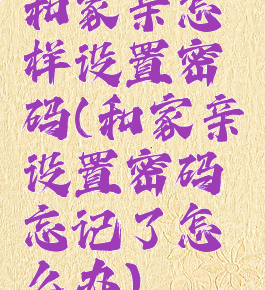 和家亲怎
样设置密
码(和家亲
设置密码
忘记了怎
么办)